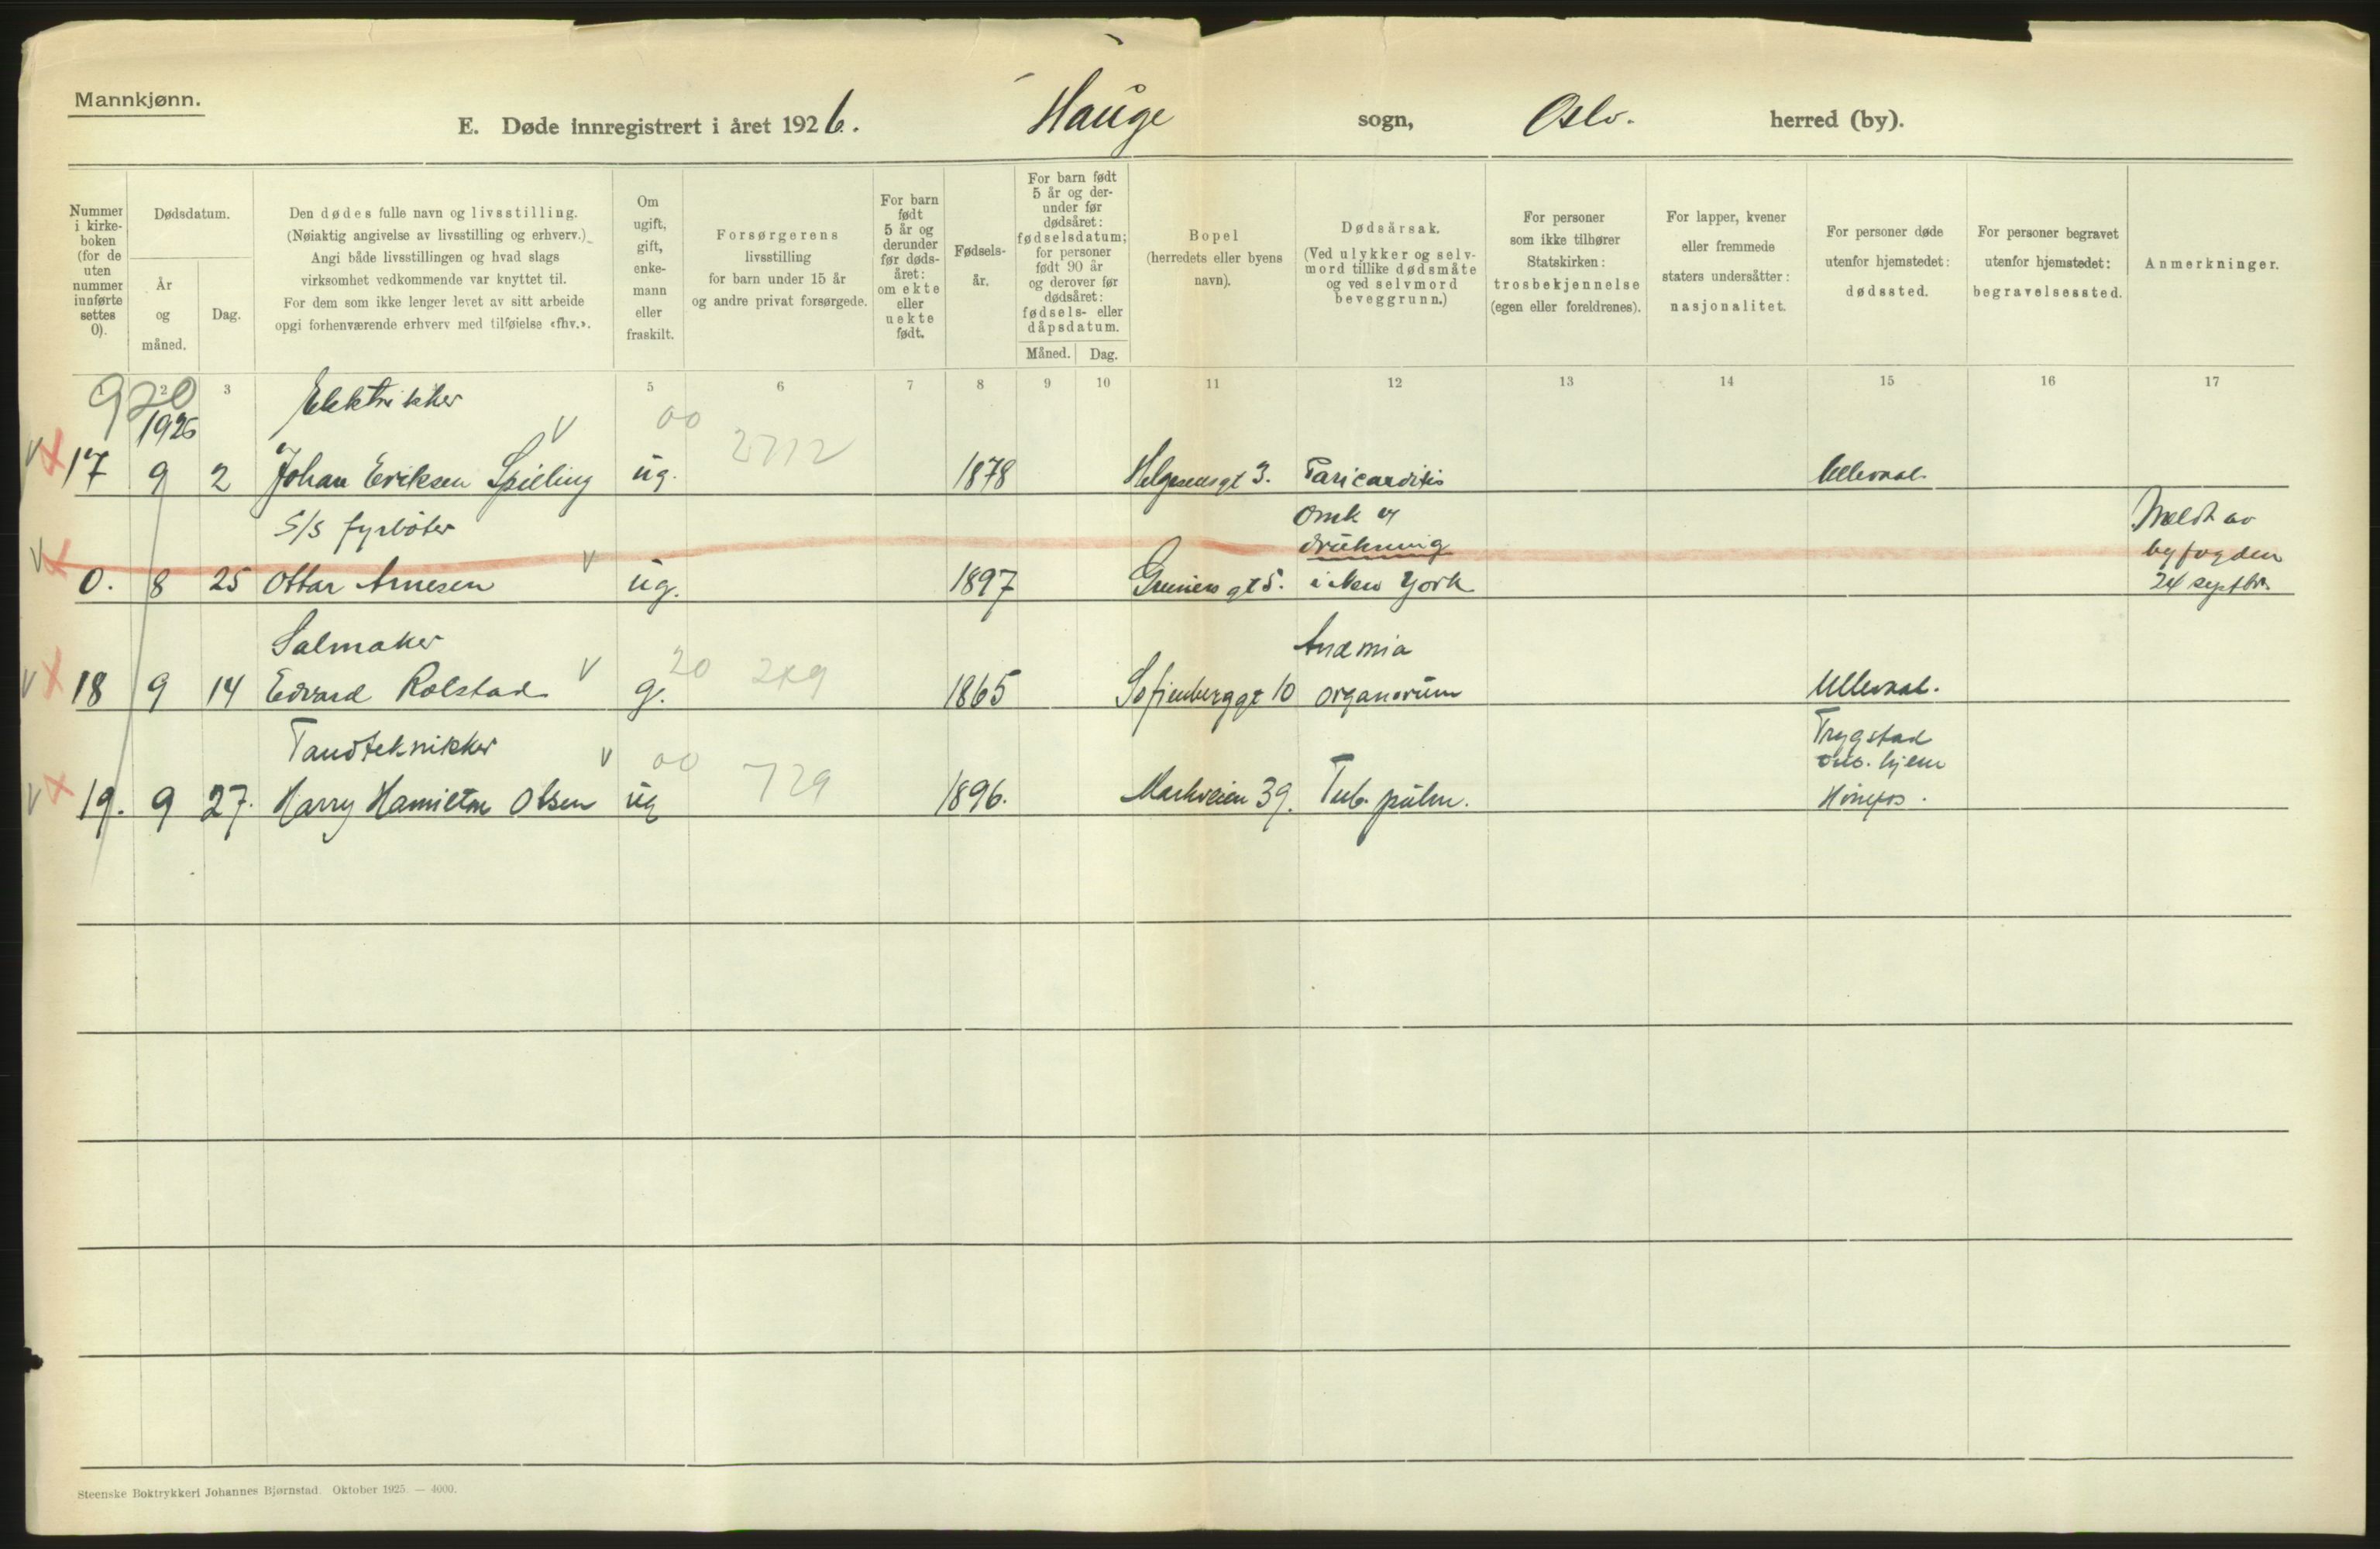 Mannkjønn.
E. Døde innregistrert i året 1926. Hauge sogn, Oslo. herred (by).
Nummer i kirke-boken (for de uten nummer innførte settes 0).
Dødsdatum.
År og måned.
Dag.
Den dødes fulle navn og livsstilling.
(Nøiaktig angivelse av livsstilling og erhverv.)
Angi både livsstillingen og hvad slags
virksomhet vedkommende var knyttet til.
For dem som ikke lenger levet av sitt arbeide
opgi forhenværende erhverv med tilføielse «fhv.».
Om ugift, gift, enke-mann eller fraskilt.
Forsørgerens
livsstilling
for barn under 15 år
og andre privat forsørgede.
For barn født 5 år og derunder før døds-året: om ekte eller uekte født.
Fødsels-år.
For barn født 5 år og der-under før dødsåret: fødselsdatum; for personer født 90 år og derover før dødsåret: fødsels- eller dåpsdatum.
Måned. Dag.
Bopel
(herredets eller byens
navn).
Dødsårsak.
(Ved ulykker og selv-
mord tillike dødsmåte
og ved selvmord
beveggrunn.)
For personer
som ikke tilhører
Statskirken:
trosbekjennelse
(egen eller foreldrenes).
For lapper, kvener
eller fremmede
staters undersåtter:
nasjonalitet.
For personer døde
utenfor hjemstedet:
dødssted.
For personer begravet
utenfor hjemstedet:
begravelsessted.
Anmerkninger.
1 2 3 5 6 7 8 9 10 11 12 13 14 15 16 17
920
1926 Elektrikker 00 2712
17 9 2 Johan Eriksen Spieling ug. 1878 Helgesensgt 3. Paricarditis Ullevaal.
S/S fyrbøter Omk v Meldt av
drukning byfogden
0. 8 25 Ottar Arnesen ug. 1897 gt 5. i New York 24 septbr.
Salmaker 20 249 Anæmia
18 9 14 Edvard Rolstad g. 1865 Sofienberggt 10 organorum Ullevaal.
Tandteknikker 00 729 Trygstad
hjem
19. 9 27. Harry Hamilton Olsen ug 1896. Markveien 39. Tub. pulm. Hønefos.
Steenske Boktrykkeri Johannes Bjørnstad. Oktober 1925. — 4000.